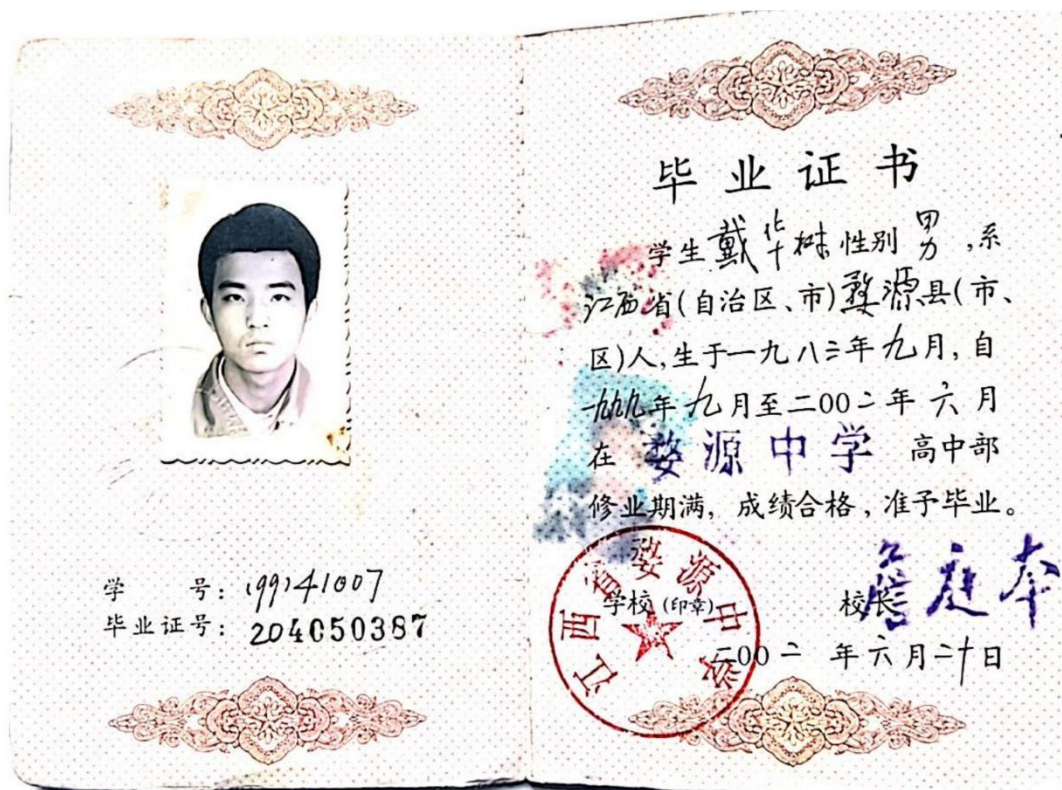 学 号：199141007
毕业证号：204050387
毕业证书
学生戴华树性别男，系
江西省(自治区、市)婺源县(市、
区)人，生于一九八三年九月，自
一九九九年九月至二00二年六月
在 婺源中学 高中部
修业期满，成绩合格，准予毕业。
江西省婺源中学
学校(印章) 校长 詹庭本
二00二 年六月二十日